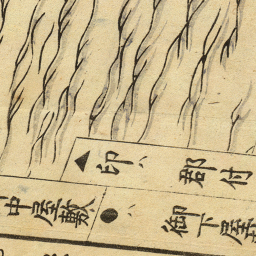 ▲印ハ
郡付
中屋敷
●御下屋敷